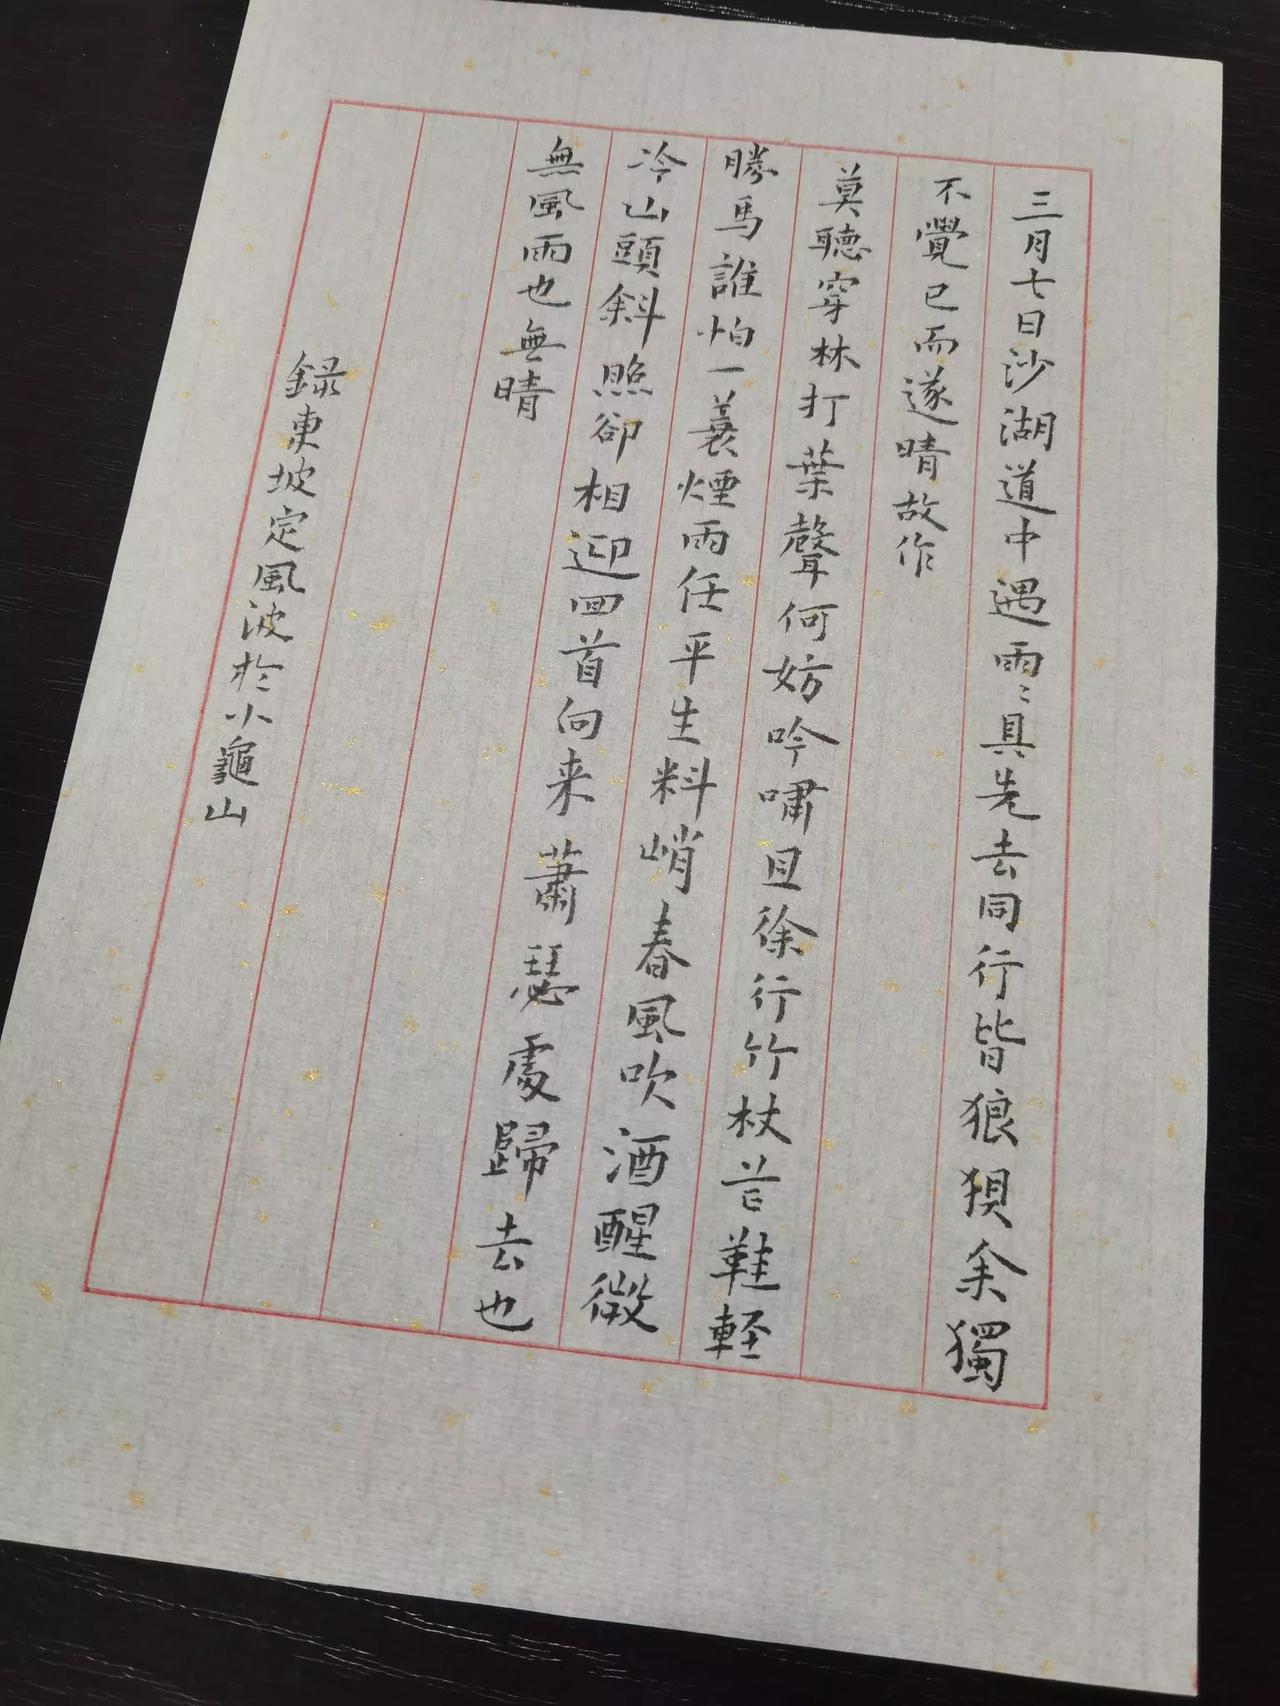 三月七日沙湖道中遇雨〻具先去同行皆狼狽余獨
不覺已而遂晴故作
莫聽穿林打葉聲何妨吟嘯且徐行竹杖芒鞋軽
勝馬誰怕一蓑煙雨任平生料峭春風吹酒醒微
冷山頭斜照卻相迎回首向来蕭瑟處歸去也
無風雨也無晴
録東坡定風波於小龜山